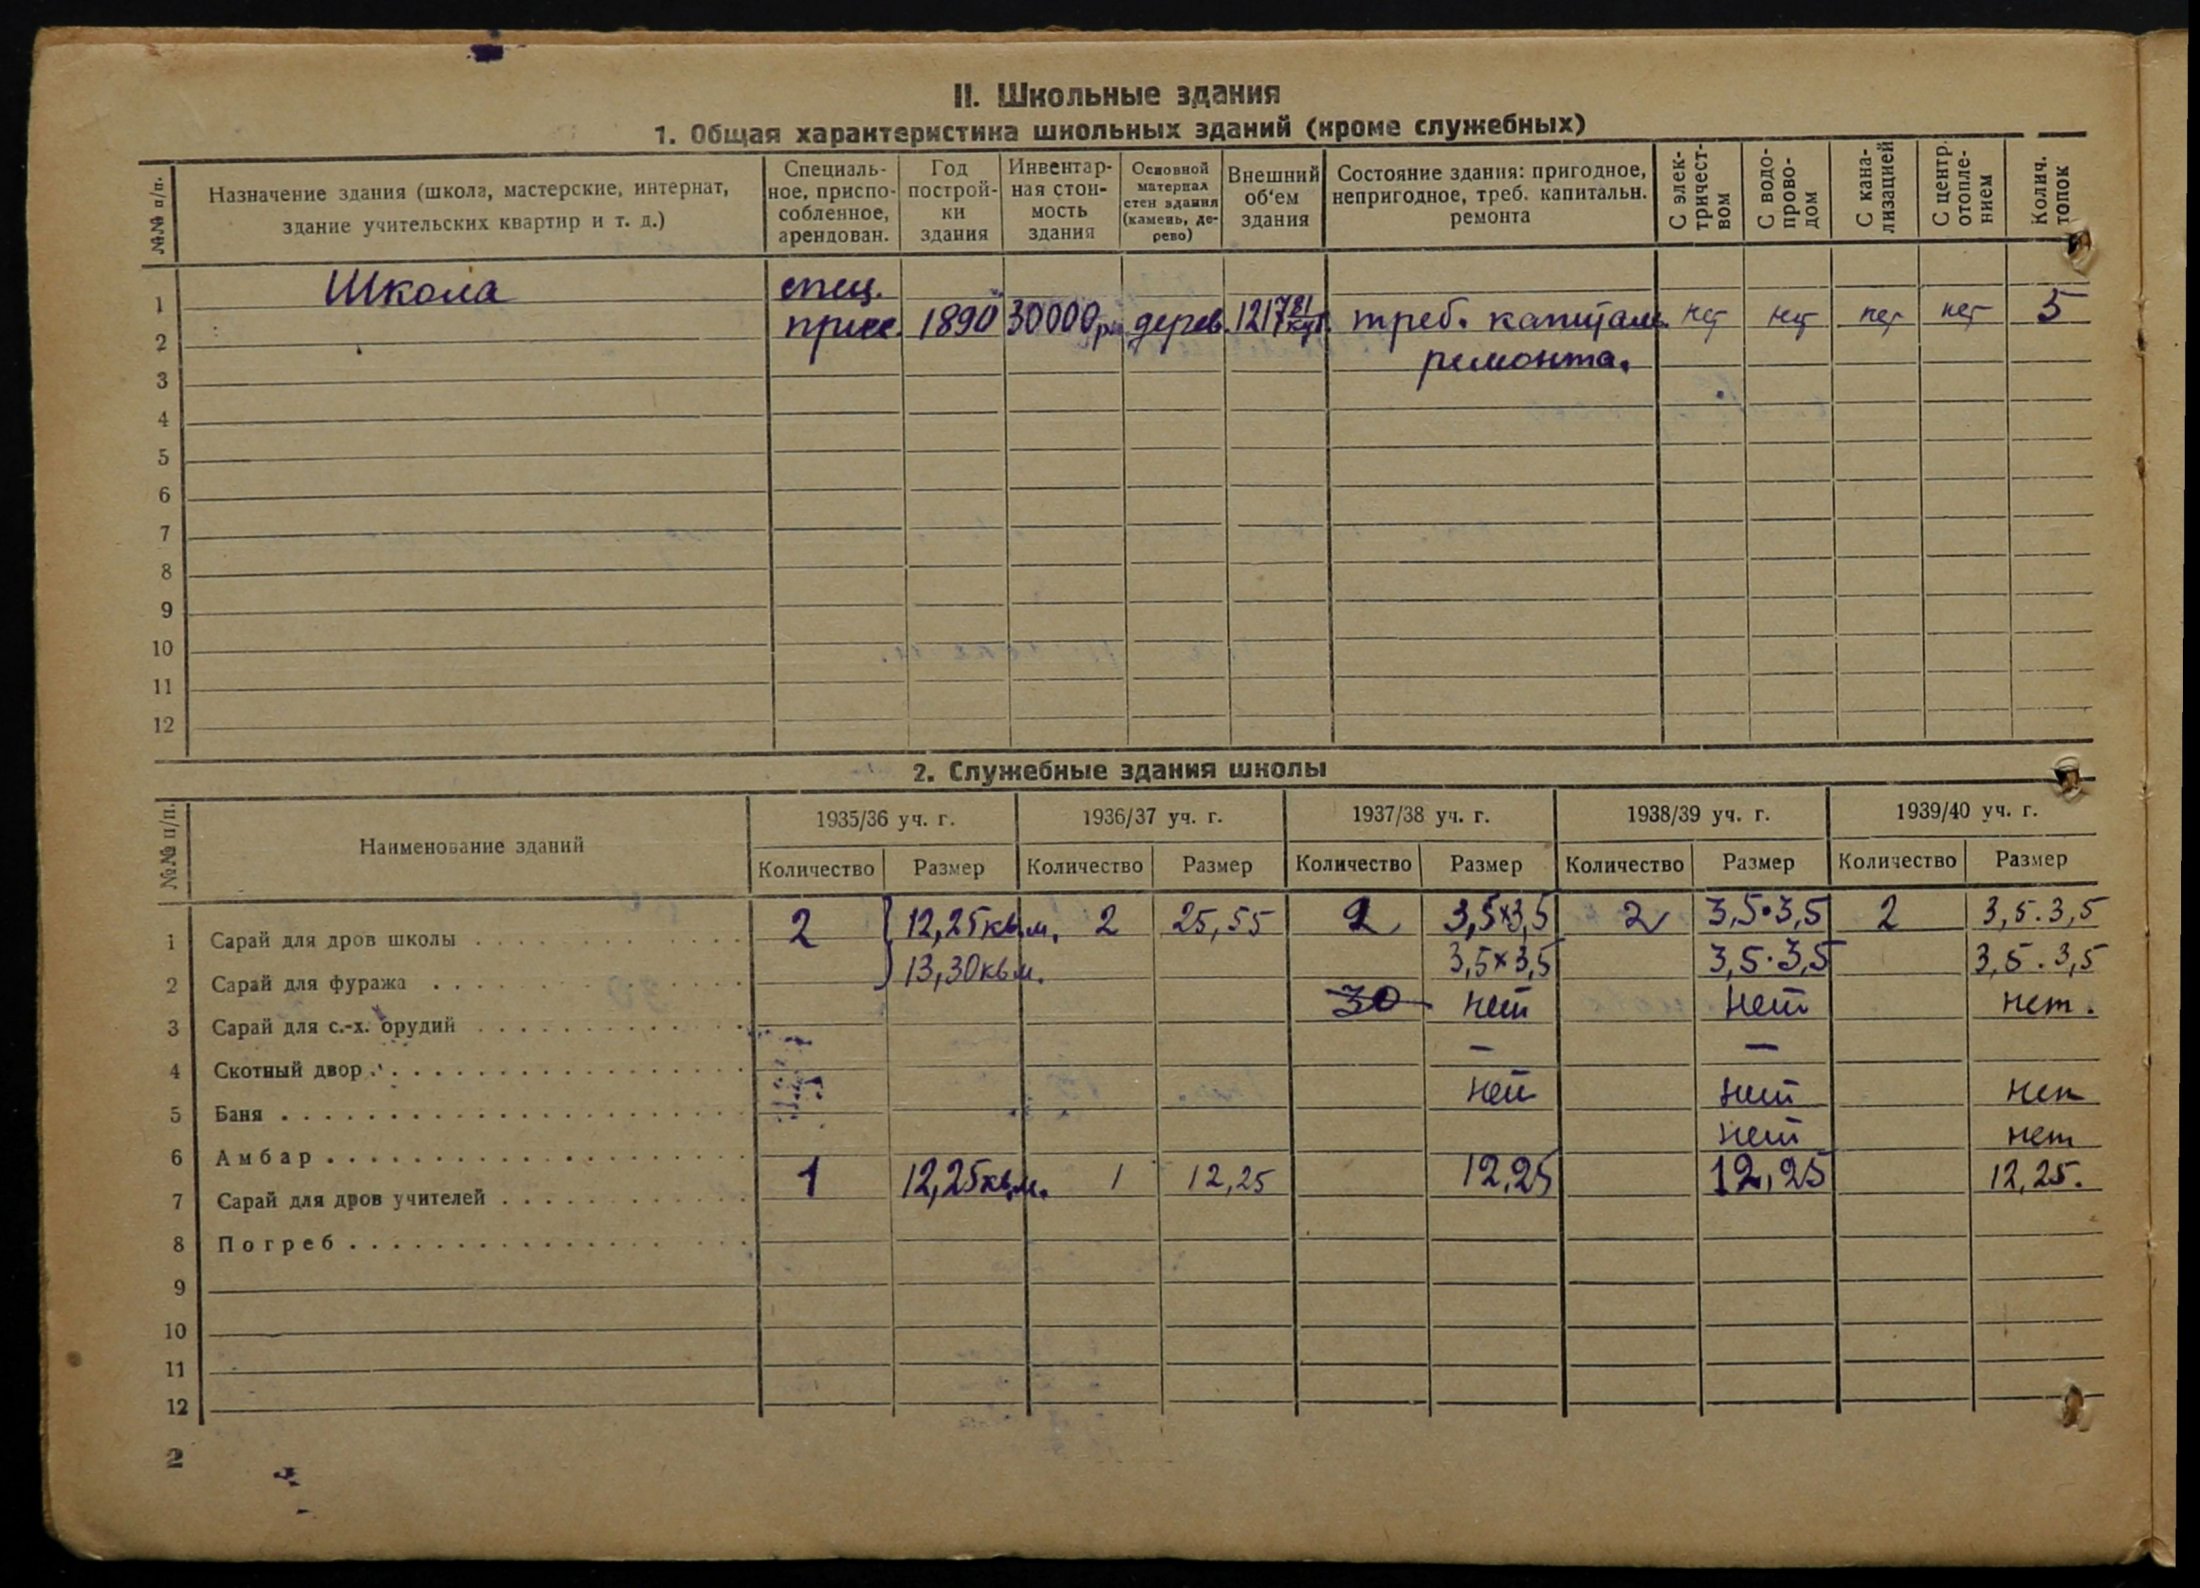 II. Школьные здания
1. Общая характеристика школьных зданий (кроме служебных)
№№ п/п. Назначение здания (школа, мастерские, интернат, здание учительских квартир и т. д.) Специаль-ное, приспо-собленное, арендован. Год построй-ки здания Инвентар-ная стои-мость здания Основной материал стен здания (камень, де-рево) Внешний об'ем здания Состояние здания: пригодное, непригодное, треб. капитальн. ремонта С элек-тричест-вом С водо-прово-дом С кана-лизацией С центр. отопле-нием Колич. топок
1 Школа спец.
2 1890 30000 дерев. 1217 треб. капитальн. нет нет нет нет 5
3 ремонта.
4
5
6
7
8
9
10
11
12
2. Служебные здания школы
№№ п/п. Наименование зданий 1935/36 уч. г. 1936/37 уч. г. 1937/38 уч. г. 1938/39 уч. г. 1939/40 уч. г.
Количество Размер Количество Размер Количество Размер Количество Размер Количество Размер
1 Сарай для дров школы 2 12,25 кв.м. 2 25,55 2 3,5×3,5 2 3,5·3,5 2 3,5.3,5
2 Сарай для фуража 13,30 кв м. 3,5×3,5 3,5·3,5 3,5.3,5
3 Сарай для с.-х. орудий 30 нет нет нет.
4 Скотный двор — —
5 Баня нет нет нет
6 Амбар нет нет
7 Сарай для дров учителей 1 12,25 кв.м. 1 12,25 12,25 12,25 12,25.
8 Погреб
9
10
11
12
2